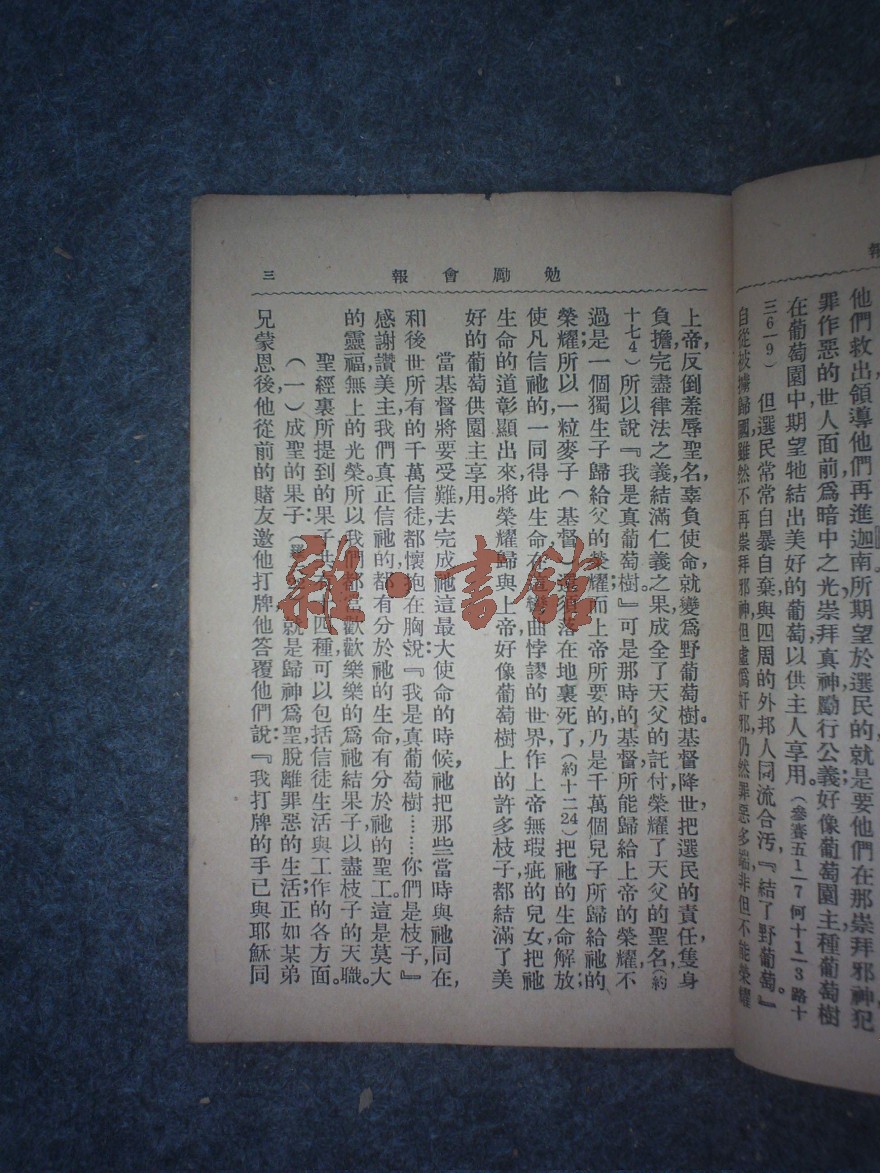 報
他們救出領導他們再進迦南所期望於選民的就是要他們在那崇拜邪神犯
罪作惡的世人面前爲暗中之光崇拜真神勵行公義好像葡萄園主種葡萄樹
在葡萄園中期望牠結出美好的葡萄以供主人享用。(參賽五1—7何十1—3路十
三6—9) 但選民常常自暴自棄與四周的外邦人同流合汚,『結了野葡萄。』
自從被擄歸國雖然不再崇拜邪神但虛僞奸邪仍然罪惡多端非但不能榮耀
勉勵會報
三
上帝,反倒羞辱聖名,辜負使命,就變爲野葡萄樹。基督降世把選民的責任隻身
負擔完盡律法之義結滿仁義之果成全了天父的託付榮耀了天父的聖名(約
十七4)所以說『我是真葡萄樹。』可是那時的基督所能歸給上帝的榮耀不
過是一個獨生子歸給父的榮耀;而上帝所要的乃是千萬個兒子所歸給祂的
榮耀;所以一粒麥子(基督)還得落在地裏死了(約十二24)把祂的生命解放;
使凡信祂的一同得此生命在這彎曲悖謬的世界作上帝無瑕疵的兒女把祂
生命的道彰顯出來,將榮耀歸與上帝好像葡萄樹上的許多枝子都結滿了美
好的葡萄供園主享用。
當基督將要受難,去完成祂這最大使命的時候,祂把那些當時與祂同在,
和後世所有的千萬信徒都懷抱在胸,說:『我是真葡萄樹……你們是枝子。』
感謝讚美主我們真正信祂的都有分於祂的生命有分於祂的聖工。這是莫大
的靈福,無上的光榮所以我們都當歡歡樂樂的爲祂結果子以盡枝子的天職。
聖經裏所提到的果子共有十四種可以包括信徒生活與工作的各方面。
(一)成聖的果子就是歸神爲聖,脫離罪惡的生活;正如某弟
兄蒙恩後他從前的賭友邀他打牌他答覆他們說:『我打牌的手已與耶穌同
雜·書館